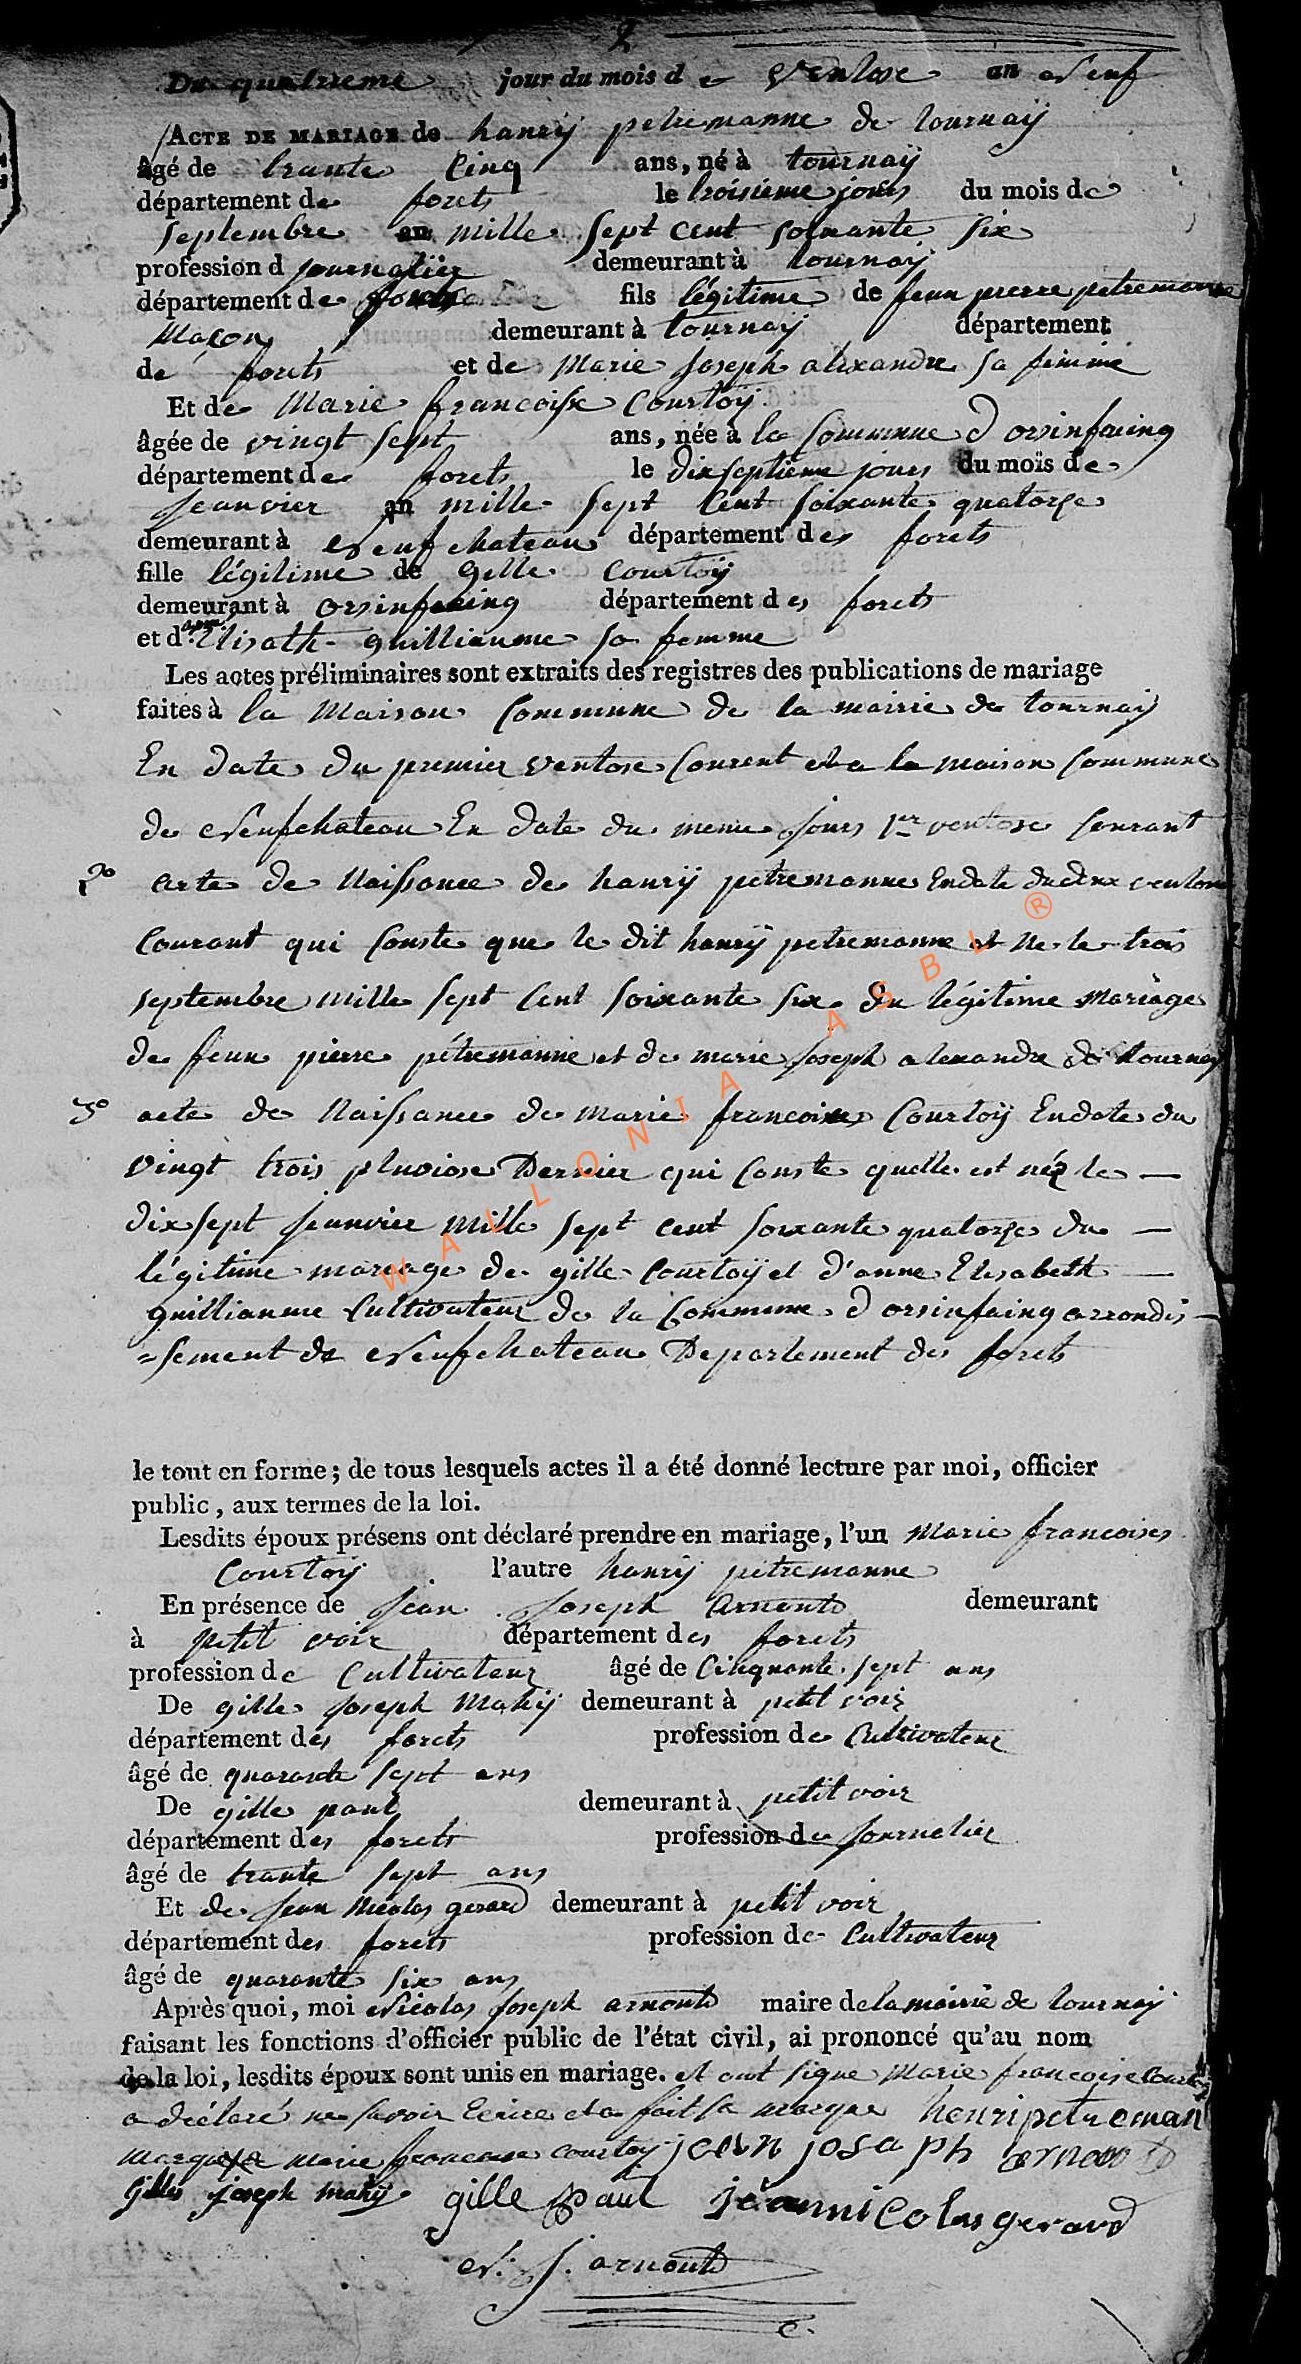 2
Du quatrieme jour du mois de Ventose an Neuf
ACTE DE MARIAGE de hanrÿ petremanne de tournaÿ
âgé de trante Cinq ans, né à tournaÿ
département de forets le troisieme jours du mois de
septembre an mille sept cent soixante six
profession d journalier demeurant à tournaÿ
département de fils légitime de feuu pierre petremanne
Maçon demeurant à tournaÿ département
de forets et de Marie Joseph alexandre sa femme
Et de Marie francoise Courtoÿ
âgée de vingt sept ans, née à la Commune d orsinfaing
département de forets le dix septieme jours du mois de
Jeanvier an mille sept Cent soixante quatorze
demeurant à Neufchateau département des forets
fille légitime de Gille Courtoÿ
demeurant à orsinfaing département des forets
et d'anne Elisath guilliaume sa femme
Les actes préliminaires sont extraits des registres des publications de mariage
faites à la Maison Commune de la mairie de tournaÿ
En date du premier ventose Courent et a la maison Commune
de Neufchateau En date du meme jours 1er ventose Courant
2o acte de Naissance de hanrÿ petremanne En date du deux ventose
Courant qui Conste que le dit hanrÿ petremanne est Ne le trois
septembre Mille sept Cent soixante six du légitime Mariage
de feuu pierre pétremanne et de marie Joseph alexandre de tournaÿ
3o acte de Naissance de Marie francoise Courtoÿ En date du
Vingt trois pluviose Dernier qui Conste quelle est née le
dix sept Jeanvier Mille sept cent soixante quatorze du
légitime mareage de gille Courtoÿ et d'anne Elisabeth
guilliaume Cultivateur de la Commune d orsinfaing arrondis
=sement de Neufchateau Departement des forets
le tout en forme; de tous lesquels actes il a été donné lecture par moi, officier
public, aux termes de la loi.
Lesdits époux présens ont déclaré prendre en mariage, l'un Marie francoises
Courtoÿ l'autre hanrÿ petremanne
En présence de Jean Joseph Arnould demeurant
à petit voir département des forets
profession de Cultivateur âgé de Cinquante sept ans
De gille Joseph Mahÿ demeurant à petit voir
département des forets profession de Cultivateur
âgé de quarante sept ans
De gille paul demeurant à petit voir
département des forets profession de Journelier
âgé de trante sept ans
Et de Jean Nicolas gerard demeurant à petit voir
département des forets profession de Cultivateur
âgé de quarante six ans
Après quoi, moi Nicolas Joseph arnould maire de la mairie de tournaÿ
faisant les fonctions d'officier public de l'état civil, ai prononcé qu'au nom
de la loi, lesdits époux sont unis en mariage. et ont signe Marie francoise Courtoÿ
a déclaré ne savoir Ecrire et a fait sa marque henri petreman
marque x marie francoise courtoÿ jean josaph arnould
Gilles joseph mahÿ gille paul jean nicolas gerard
N. J. arnould
WALLONIA ASBL ®